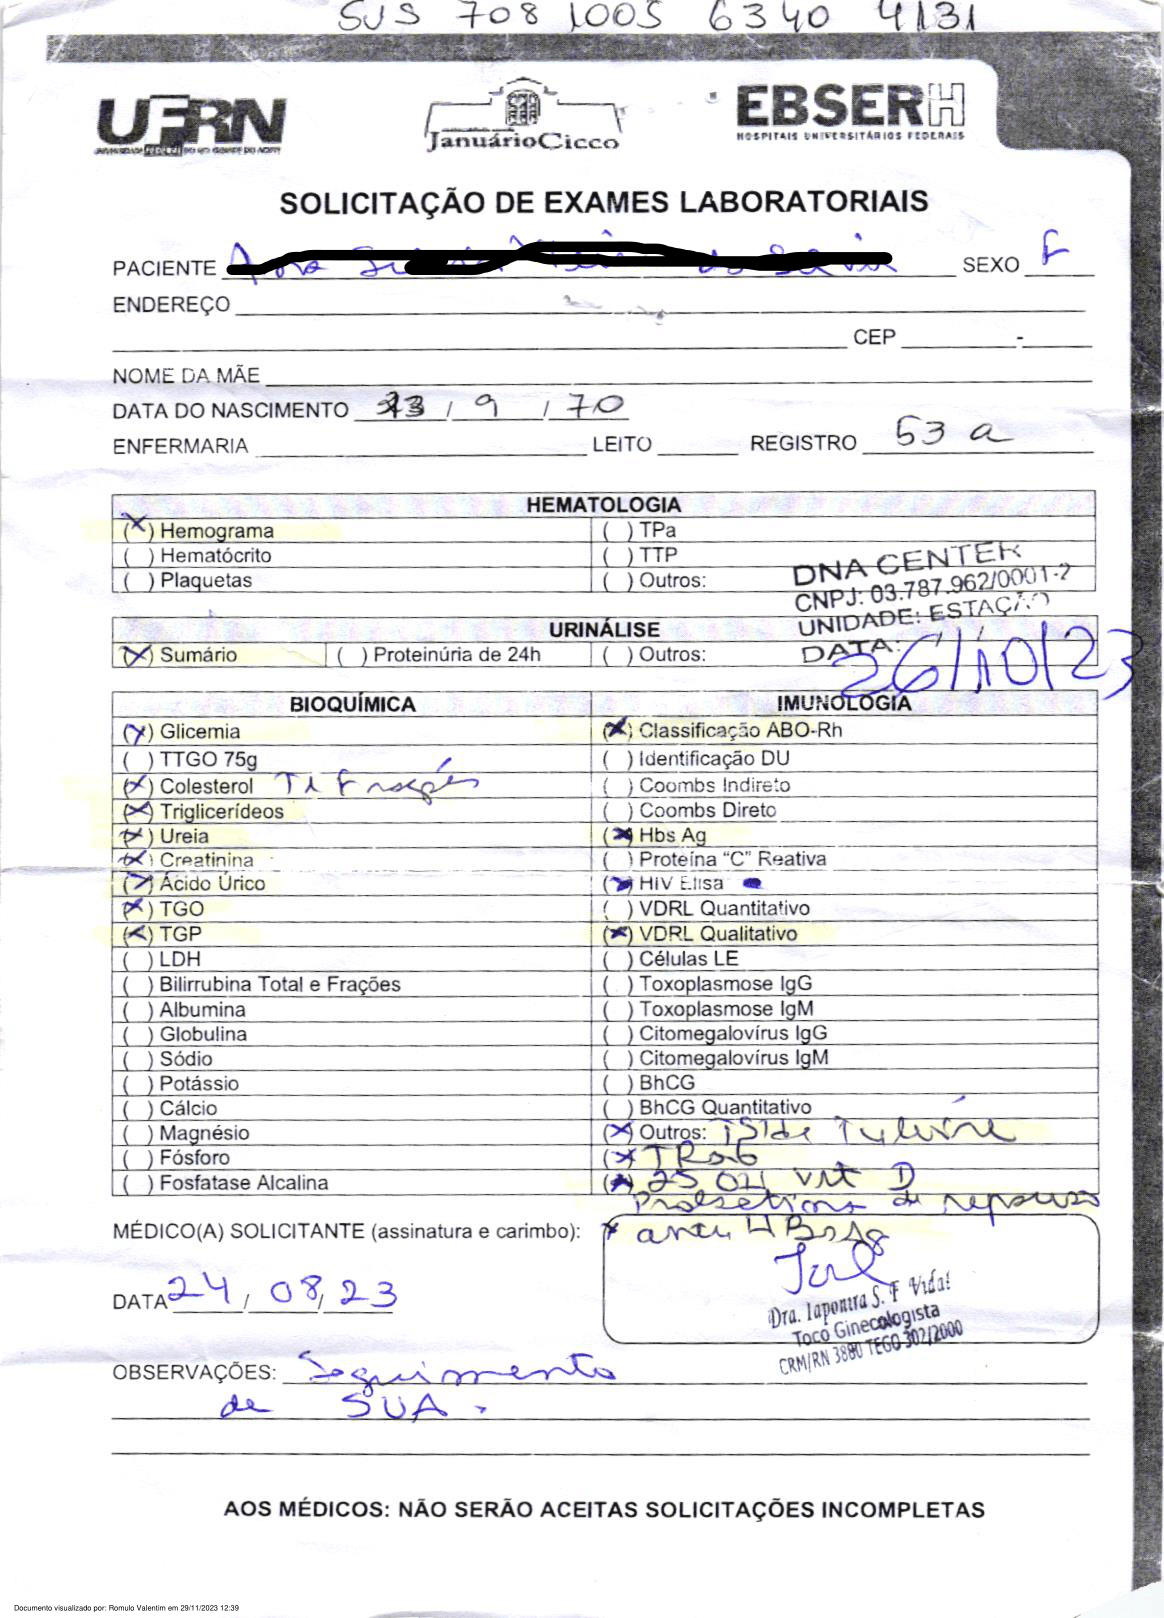 SUS 708 1005 6340 4131
UFRN
UNIVERSIDADE FEDERAL DO RIO GRANDE DO NORTE
JanuárioCicco
EBSERH
HOSPITAIS UNIVERSITÁRIOS FEDERAIS
SOLICITAÇÃO DE EXAMES LABORATORIAIS
PACIENTE SEXO F
ENDEREÇO
CEP -
NOME DA MÃE
DATA DO NASCIMENTO / 9 / 70
ENFERMARIA LEITO REGISTRO 53 a
HEMATOLOGIA
(X) Hemograma ( ) TPa
( ) Hematócrito ( ) TTP
( ) Plaquetas ( ) Outros:
DNA CENTER
CNPJ: 03.787.962/0001-2
UNIDADE: ESTAÇÃO
DATA: 26/10/23
URINÁLISE
(X) Sumário ( ) Proteinúria de 24h ( ) Outros:
BIOQUÍMICA IMUNOLOGIA
(X) Glicemia (X) Classificação ABO-Rh
( ) TTGO 75g ( ) Identificação DU
(X) Colesterol T e Frações ( ) Coombs Indireto
(X) Triglicerídeos ( ) Coombs Direto
(X) Ureia (X) Hbs Ag
(X) Creatinina ( ) Proteína “C” Reativa
(X) Ácido Úrico (X) HIV Elisa
(X) TGO ( ) VDRL Quantitativo
(X) TGP (X) VDRL Qualitativo
( ) LDH ( ) Células LE
( ) Bilirrubina Total e Frações ( ) Toxoplasmose IgG
( ) Albumina ( ) Toxoplasmose IgM
( ) Globulina ( ) Citomegalovírus IgG
( ) Sódio ( ) Citomegalovírus IgM
( ) Potássio ( ) BhCG
( ) Cálcio ( ) BhCG Quantitativo
( ) Magnésio (X) Outros:
( ) Fósforo (X) TRab
( ) Fosfatase Alcalina (X) 25 OH vit D
de repouso
MÉDICO(A) SOLICITANTE (assinatura e carimbo): x anti HBsAg
Dra. Iaponira S. F Vidal
Toco Ginecologista
CRM/RN 3880 TEGO 302/2000
DATA 24 / 08 / 23
OBSERVAÇÕES: Seguimento
de SUA.
AOS MÉDICOS: NÃO SERÃO ACEITAS SOLICITAÇÕES INCOMPLETAS
Documento visualizado por: Romulo Valentim em 29/11/2023 12:39